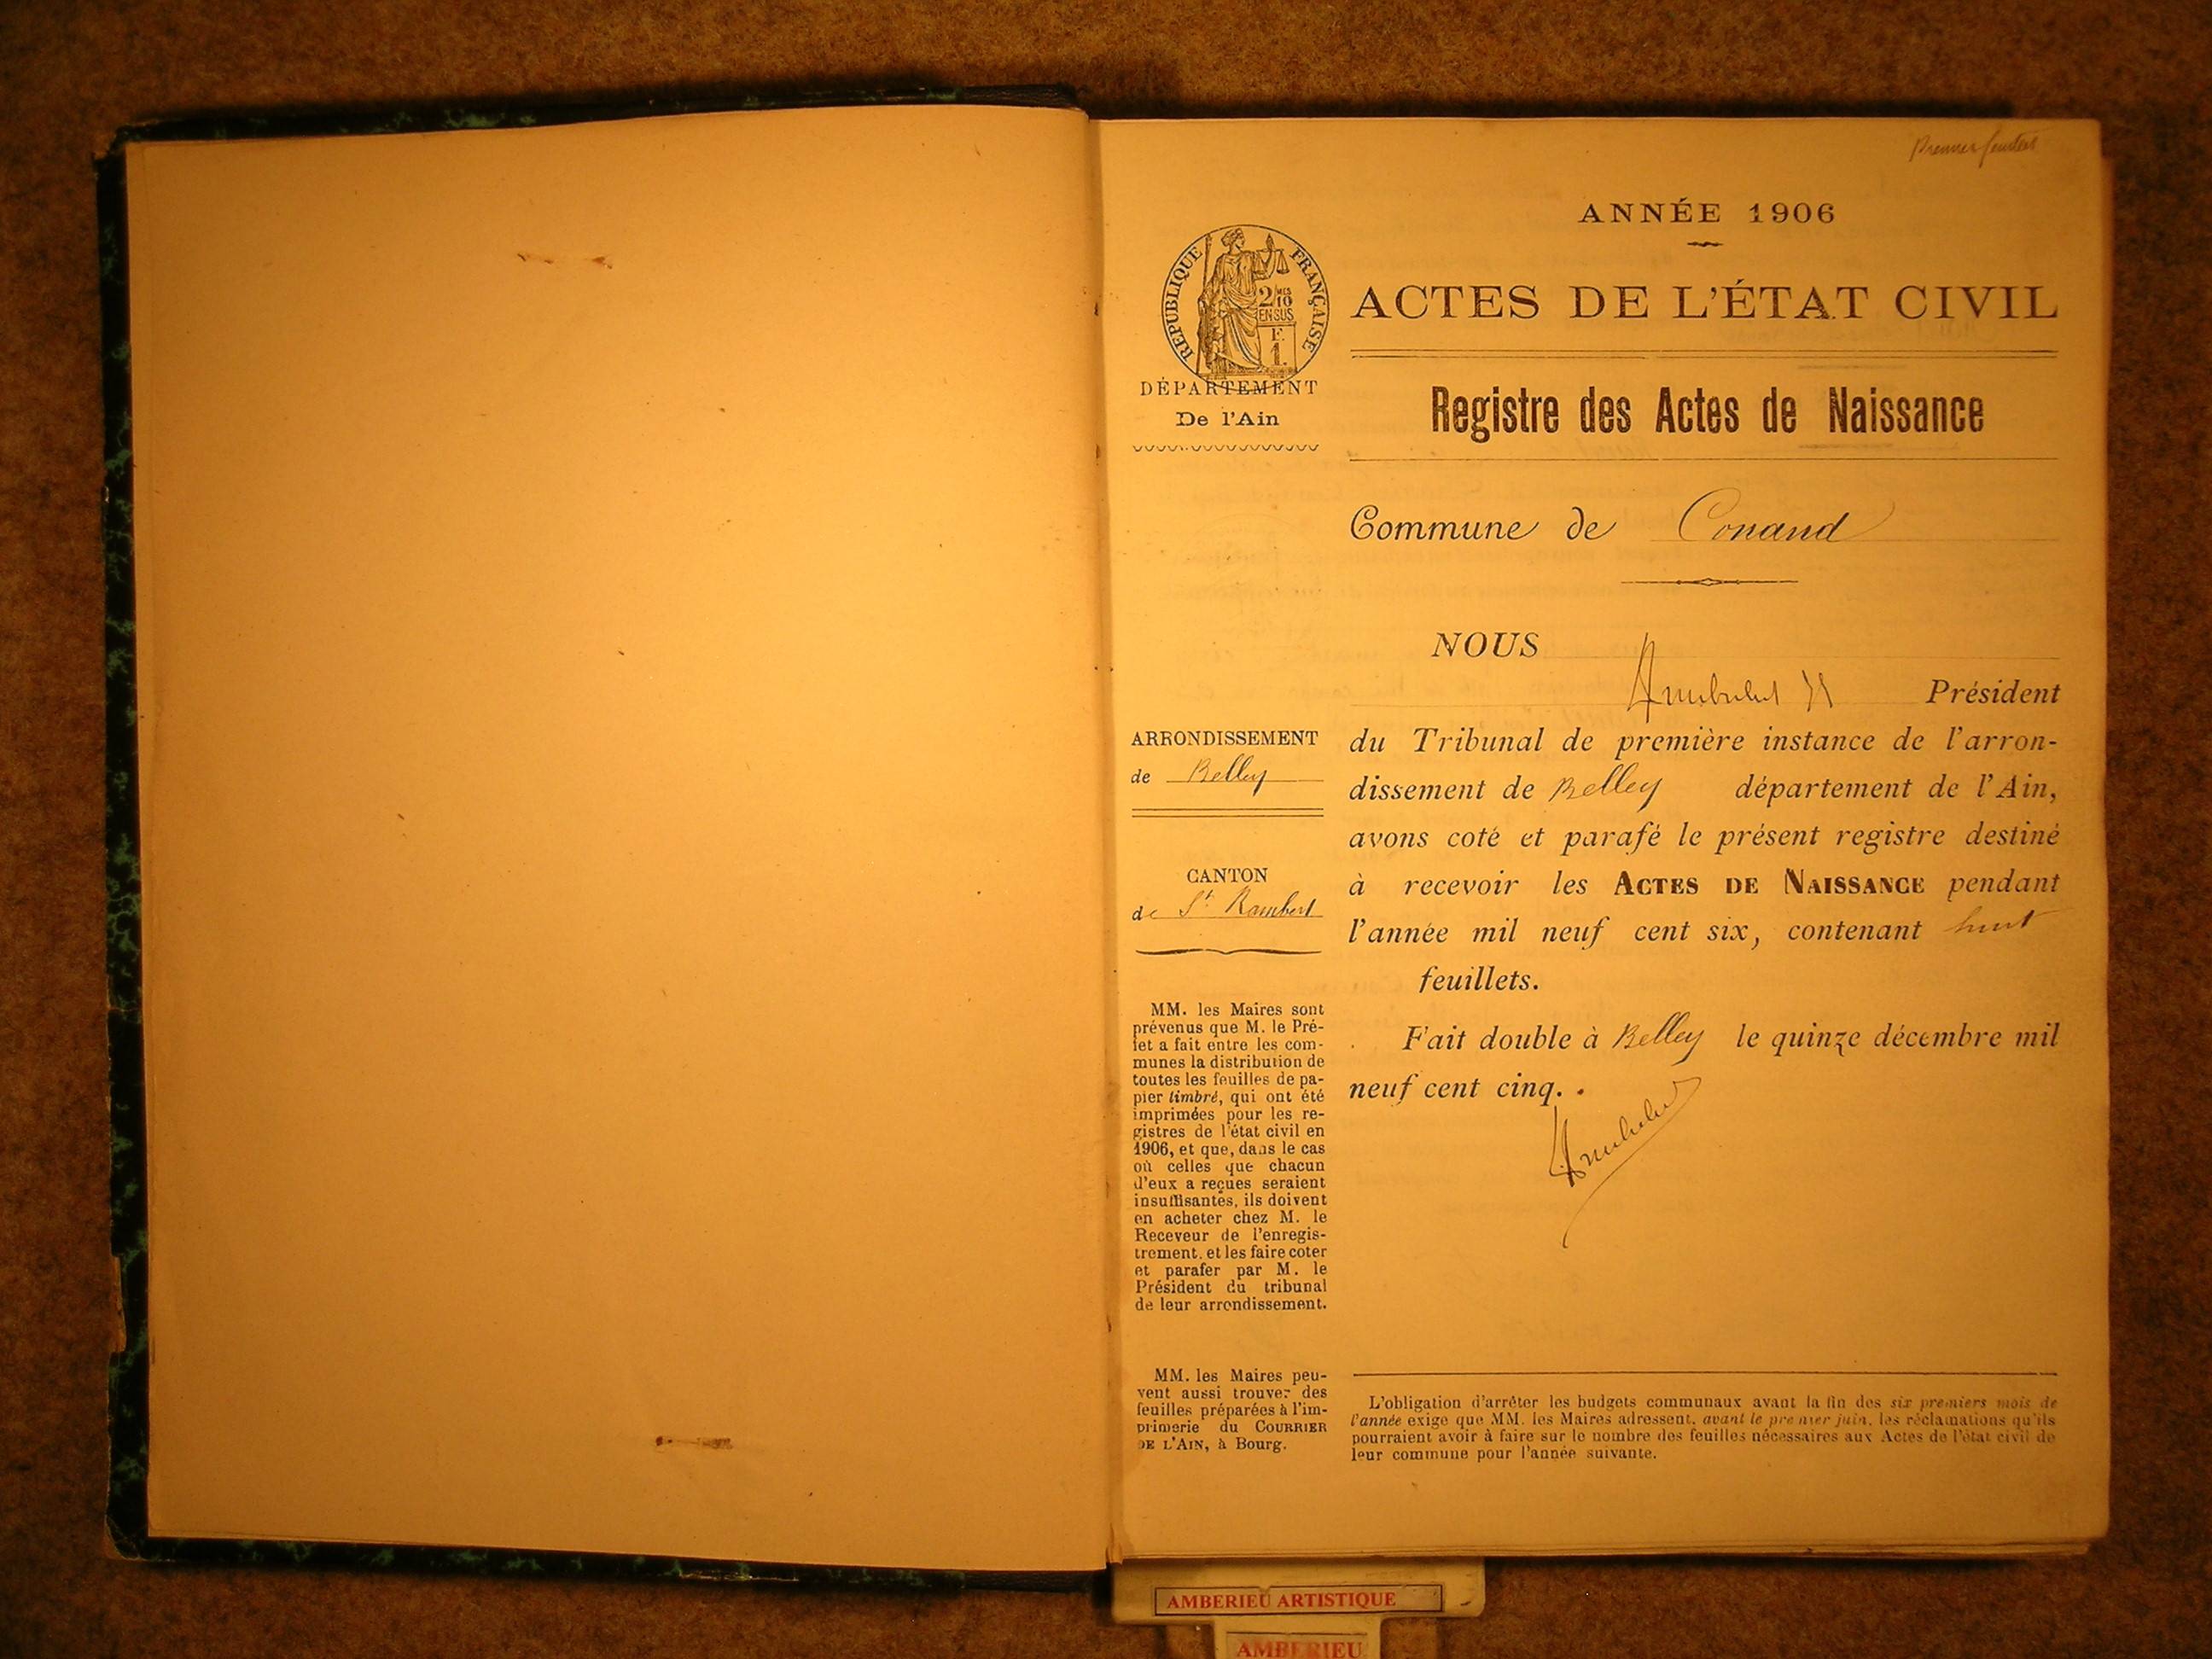 Premier feuillet
ANNÉE 1906
ACTES DE L'ÉTAT CIVIL
Registre des Actes de Naissance
Commune de Conand
RÉPUBLIQUE FRANÇAISE
2/10 MES
EN SUS
F.
1.
DÉPARTEMENT
De l'Ain
ARRONDISSEMENT
de Belley
CANTON
de St Rambert
MM. les Maires sont
prévenus que M. le Pré-
fet a fait entre les com-
munes la distribution de
toutes les feuilles de pa-
pier timbré, qui ont été
imprimées pour les re-
gistres de l'état civil en
1906, et que, dans le cas
où celles que chacun
d'eux a reçues seraient
insuffisantes, ils doivent
en acheter chez M. le
Receveur de l'enregis-
trement, et les faire coter
et parafer par M. le
Président du tribunal
de leur arrondissement.
MM. les Maires peu-
vent aussi trouver des
feuilles préparées à l'im-
primerie du COURRIER
DE L'AIN, à Bourg.
NOUS
Président
du Tribunal de première instance de l'arron-
dissement de Belley département de l'Ain,
avons coté et parafé le présent registre destiné
à recevoir les ACTES DE NAISSANCE pendant
l'année mil neuf cent six, contenant huit
feuillets.
Fait double à Belley le quinze décembre mil
neuf cent cinq.
L'obligation d'arrêter les budgets communaux avant la fin des six premiers mois de
l'année exige que MM. les Maires adressent, avant le premier juin, les réclamations qu'ils
pourraient avoir à faire sur le nombre des feuilles nécessaires aux Actes de l'état civil de
leur commune pour l'année suivante.
AMBERIEU ARTISTIQUE
AMBERIEU